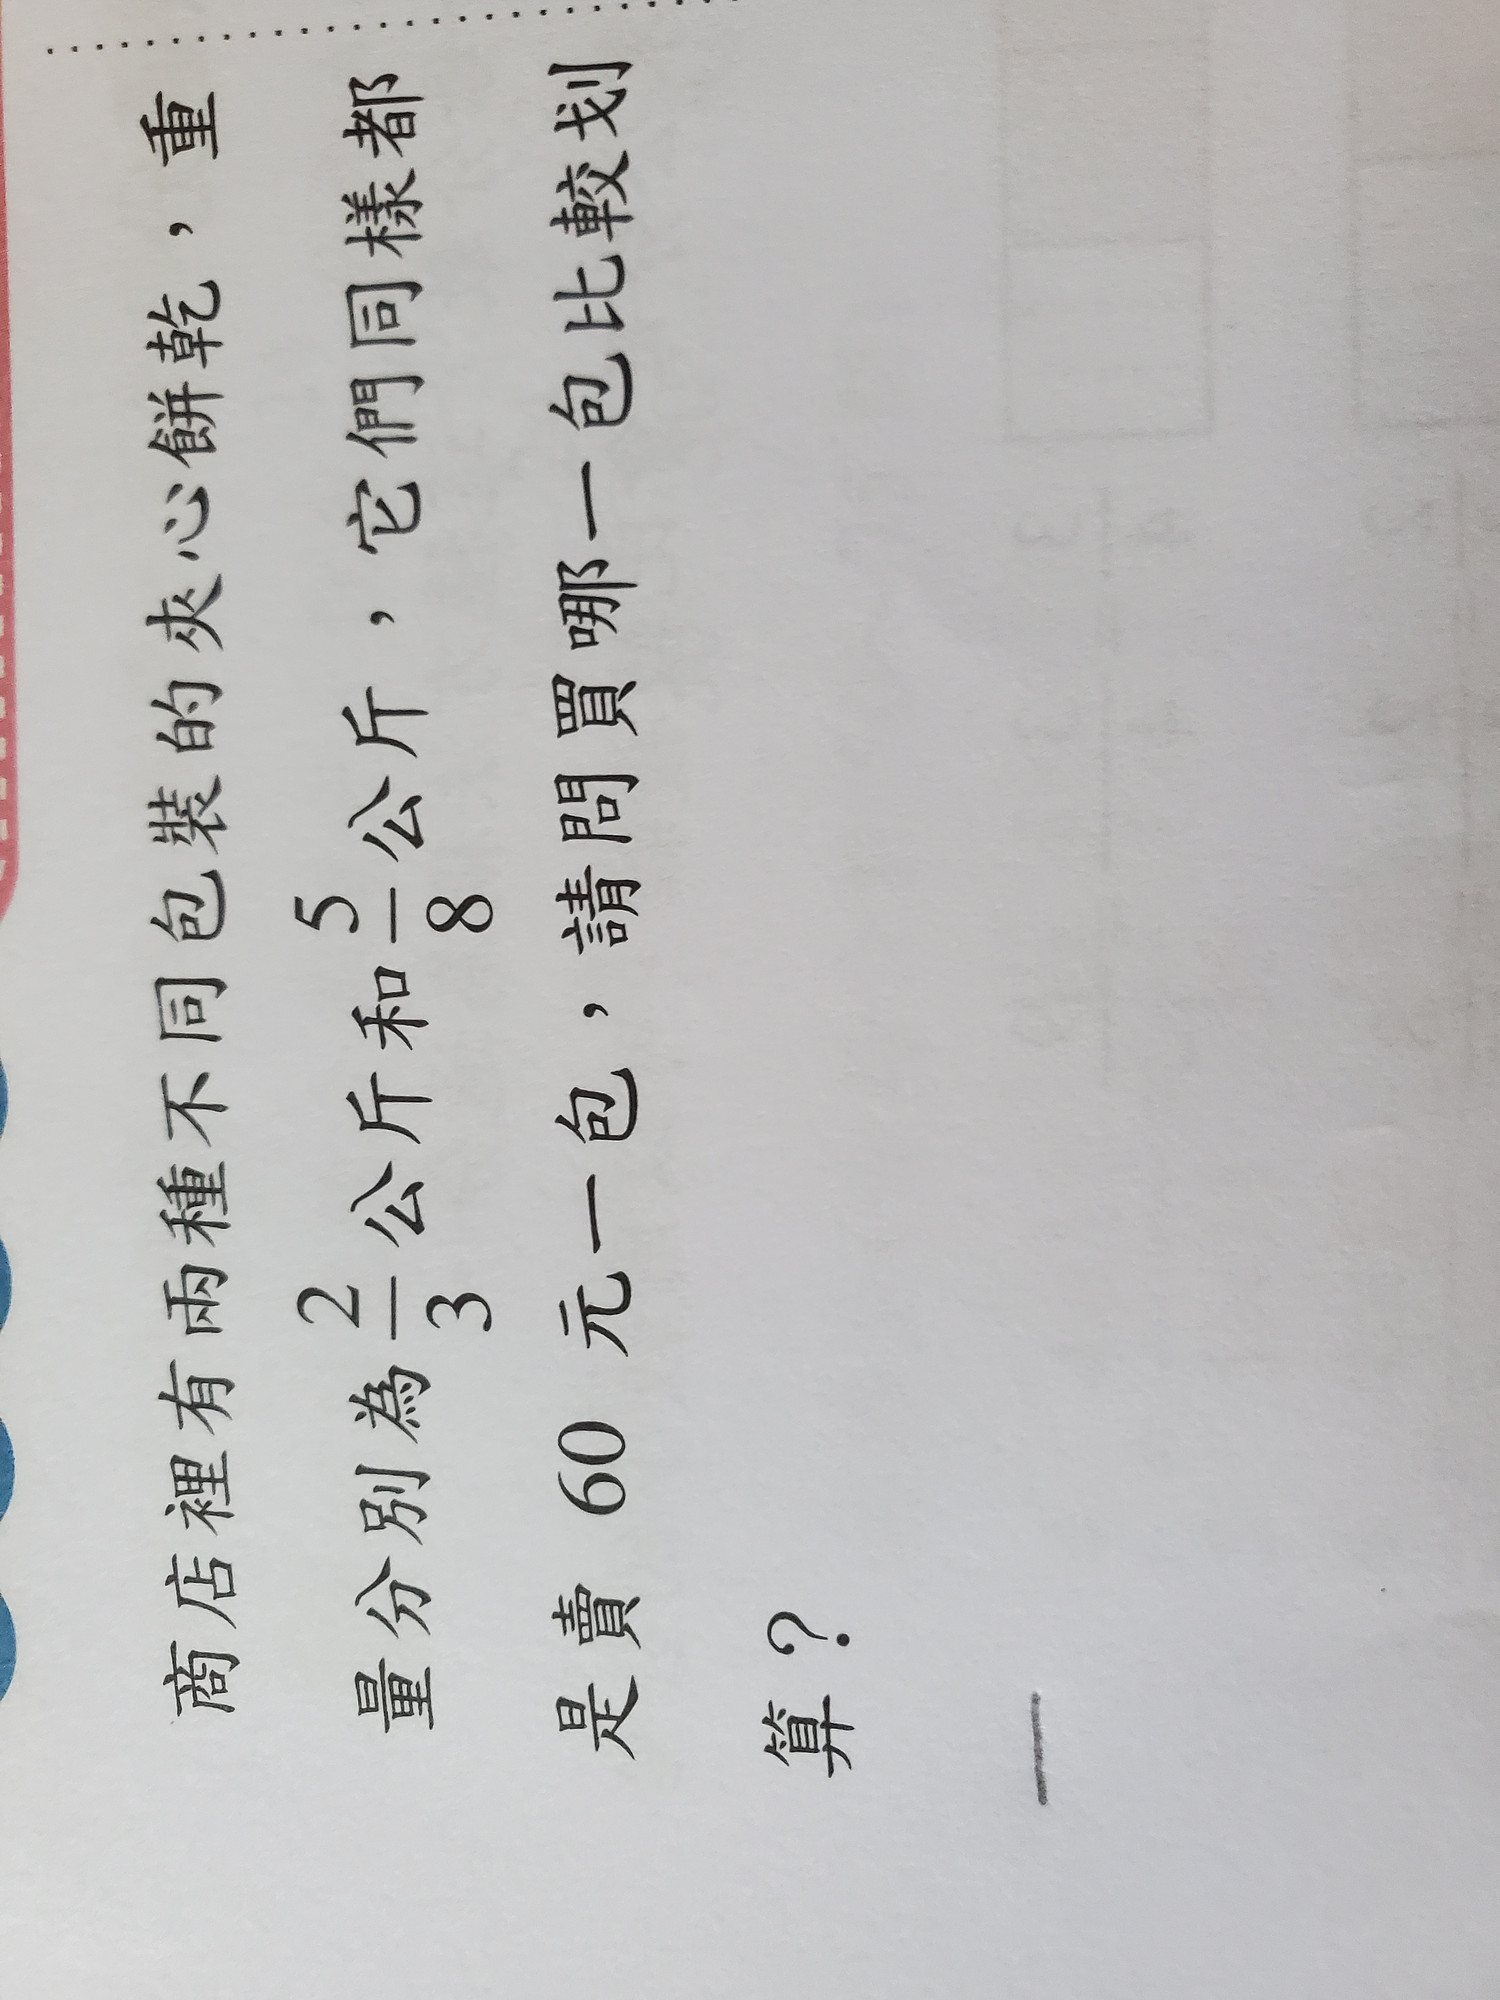 商店裡有兩種不同包裝的夾心餅乾，重
量分別為2/3公斤和5/8公斤，它們同樣都
是賣 60 元一包，請問買哪一包比較划
算？